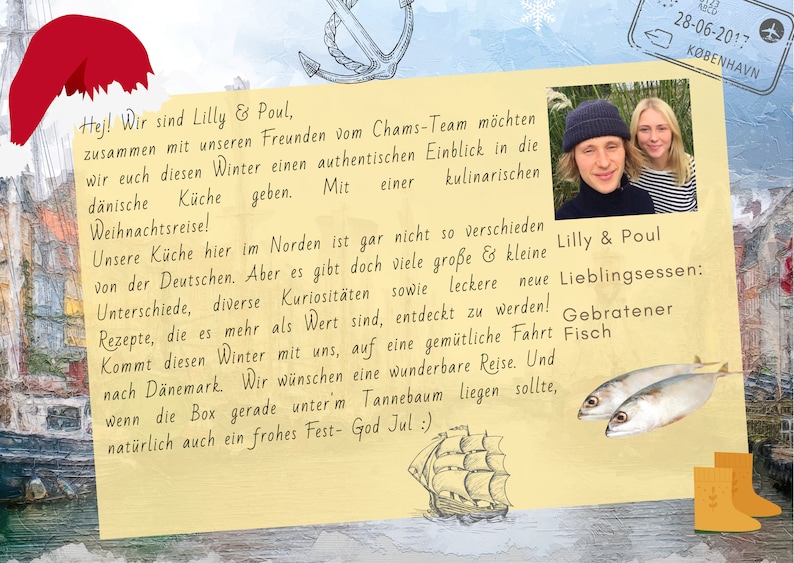 28-06-2017
KØBENHAVN
Hej! Wir sind Lilly & Poul,
zusammen mit unseren Freunden vom Chams-Team möchten
wir euch diesen Winter einen authentischen Einblick in die
dänische Küche geben. Mit einer kulinarischen
Weihnachtsreise!
Unsere Küche hier im Norden ist gar nicht so verschieden
von der Deutschen. Aber es gibt doch viele große & kleine
Unterschiede, diverse Kuriositäten sowie leckere neue
Rezepte, die es mehr als Wert sind, entdeckt zu werden!
Kommt diesen Winter mit uns, auf eine gemütliche Fahrt
nach Dänemark. Wir wünschen eine wunderbare Reise. Und
wenn die Box gerade unter'm Tannebaum liegen sollte,
natürlich auch ein frohes Fest- God Jul :)
Lilly & Poul
Lieblingsessen:
Gebratener
Fisch